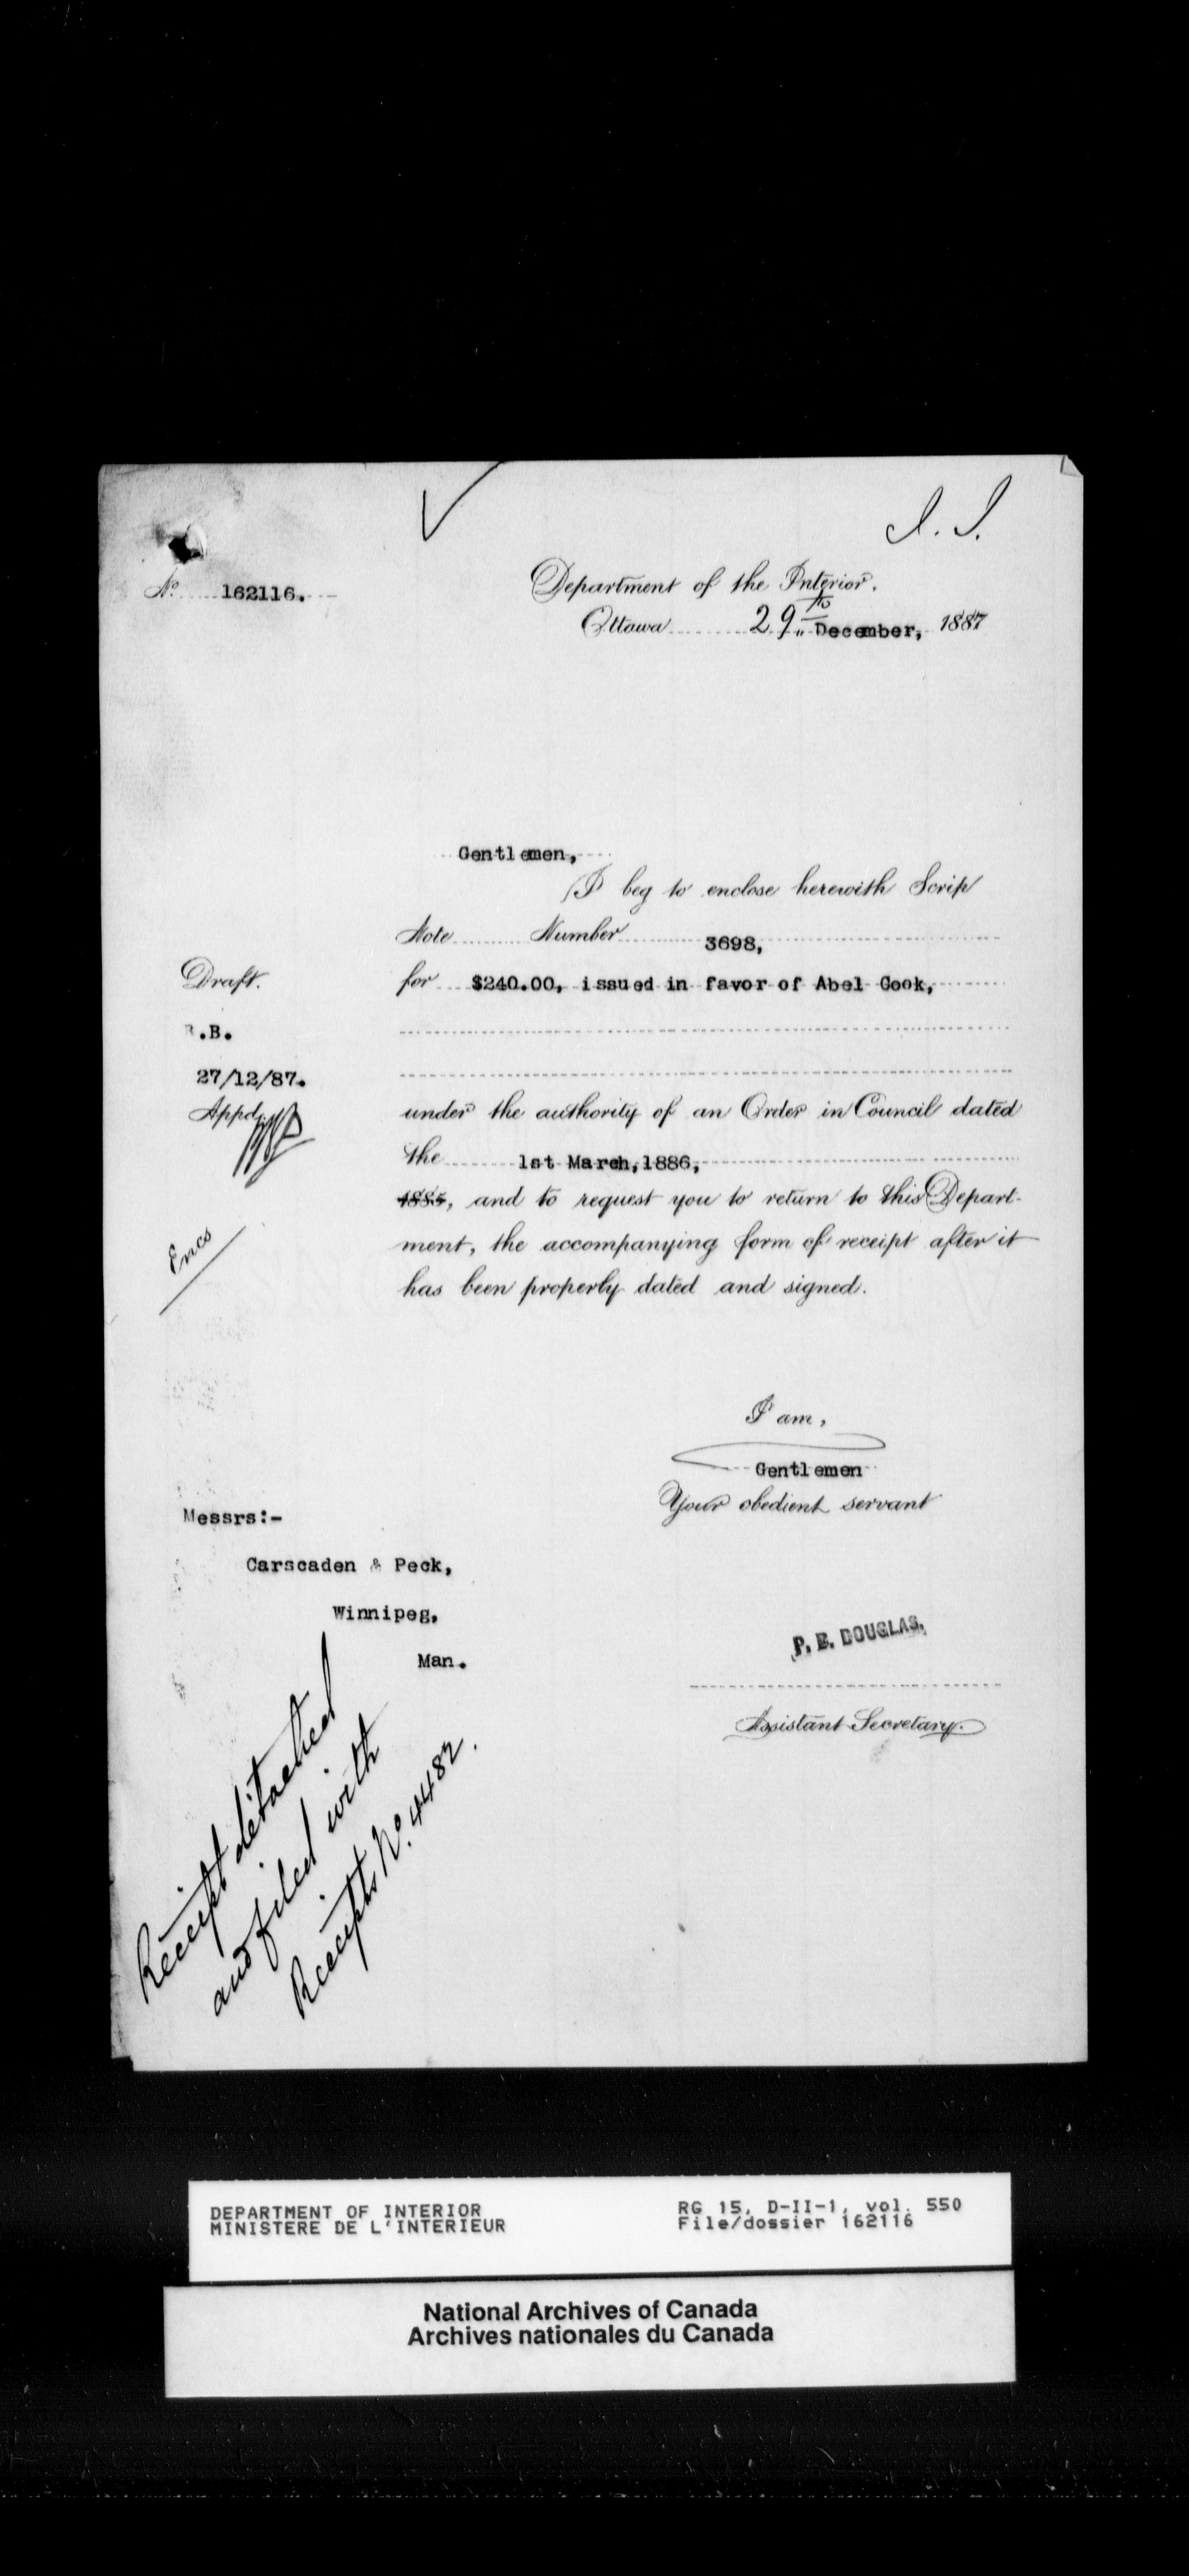 I. I.
Nº 162116.
Department of the Interior.
Ottawa 29th December, 1887
Gentlemen,
I beg to enclose herewith Scrip
Note Number 3698,
for $240.00, issued in favor of Abel Cook,
Draft.
.B.
27/12/87.
Appd.
under the authority of an Order in Council dated
the 1st March, 1886,
1885, and to request you to return to this Depart-
ment, the accompanying form of receipt after it
has been properly dated and signed.
Encs
I am,
Gentlemen
Your obedient servant
Messrs:-
Carscaden & Peck,
Winnipeg,
Man.
P. B. DOUGLAS.
Assistant Secretary.
Receipt detached
and filed with
Receipts Nº. 4482.
DEPARTMENT OF INTERIOR
MINISTERE DE L'INTERIEUR
RG 15, D-II-1, vol. 550
File/dossier 162116
National Archives of Canada
Archives nationales du Canada